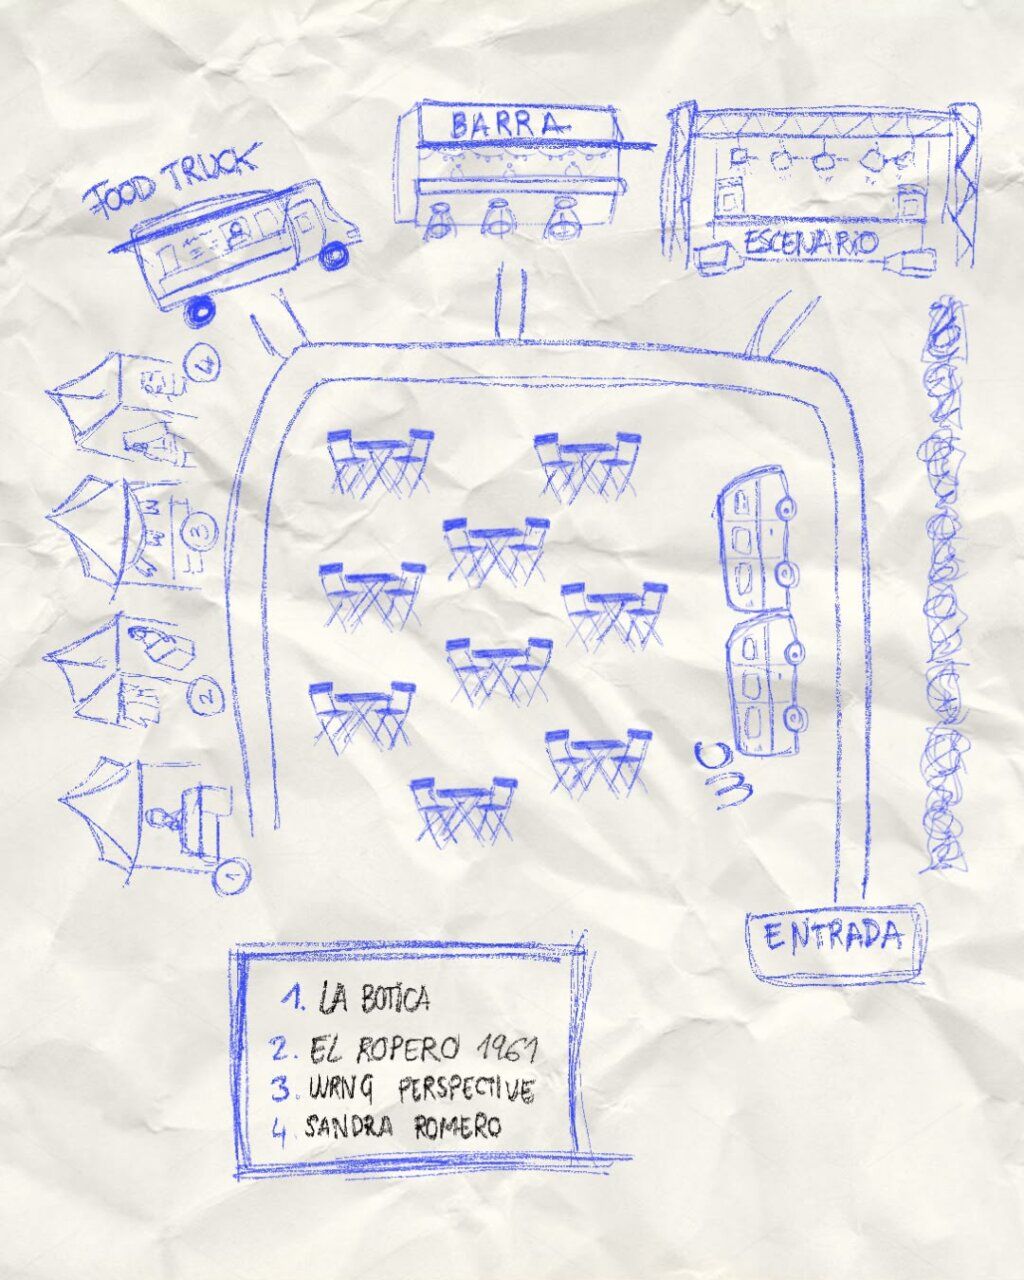 FOOD TRUCK
BARRA
ESCENARIO
4
3
2
1
ENTRADA
1. LA BOTICA
2. EL ROPERO 1961
3. WRNG PERSPECTIVE
4. SANDRA ROMERO